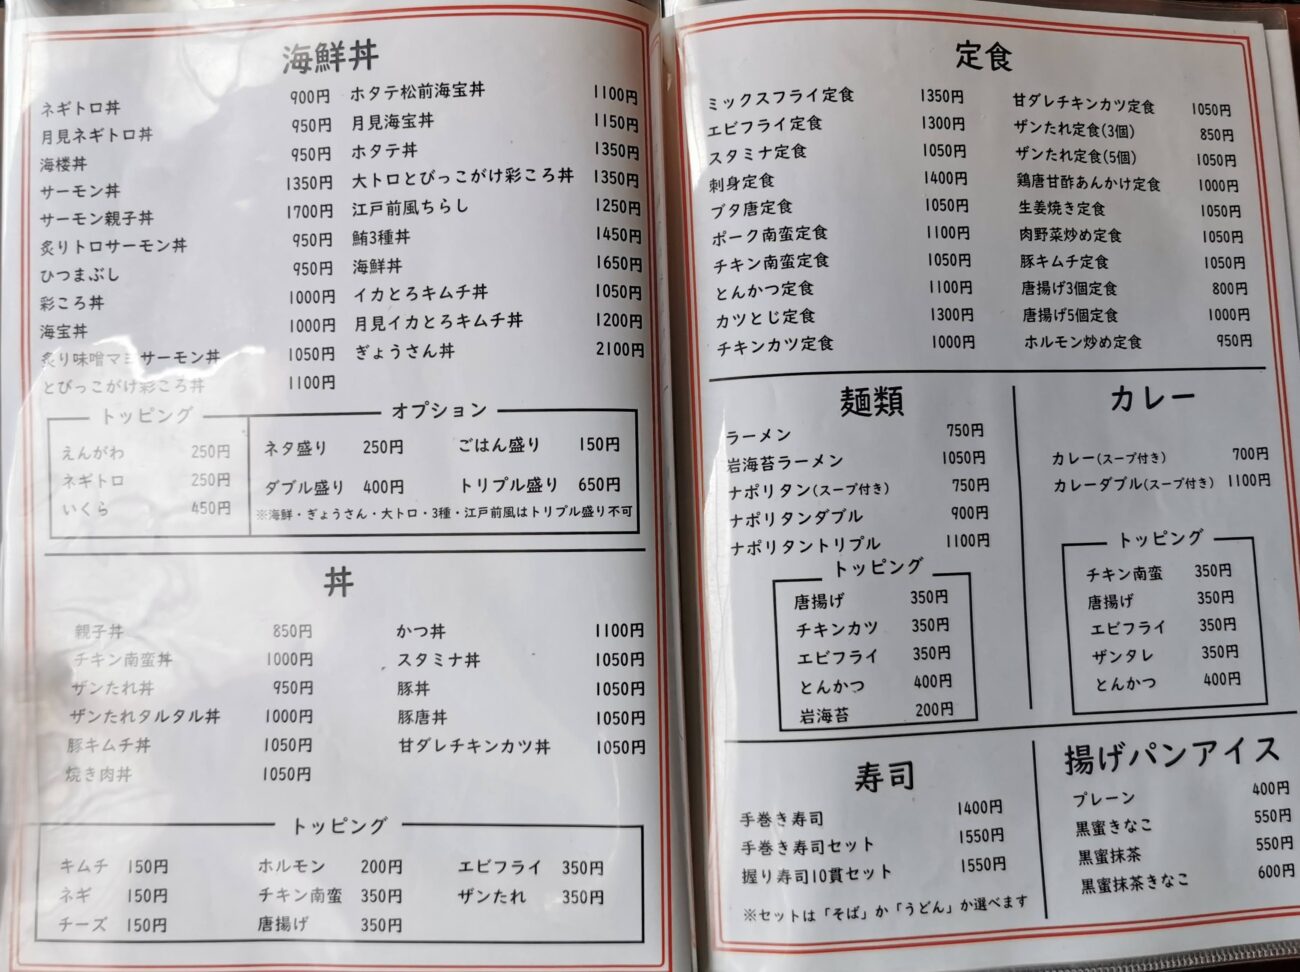 海鮮丼
ネギトロ丼 900円
月見ネギトロ丼 950円
海楼丼 950円
サーモン丼 1350円
サーモン親子丼 1700円
炙りトロサーモン丼 950円
ひつまぶし 950円
彩ころ丼 1000円
海宝丼 1000円
炙り味噌マヨサーモン丼 1050円
とびっこがけ彩ころ丼 1100円
ホタテ松前海宝丼 1100円
月見海宝丼 1150円
ホタテ丼 1350円
大トロとびっこがけ彩ころ丼 1350円
江戸前風ちらし 1250円
鮪3種丼 1450円
海鮮丼 1650円
イカとろキムチ丼 1050円
月見イカとろキムチ丼 1200円
ぎょうさん丼 2100円
トッピング
えんがわ 250円
ネギトロ 250円
いくら 450円
オプション
ネタ盛り 250円 ごはん盛り 150円
ダブル盛り 400円 トリプル盛り 650円
※海鮮・ぎょうさん・大トロ・3種・江戸前風はトリプル盛り不可
丼
親子丼 850円
チキン南蛮丼 1000円
ザンたれ丼 950円
ザンたれタルタル丼 1000円
豚キムチ丼 1050円
焼き肉丼 1050円
かつ丼 1100円
スタミナ丼 1050円
豚丼 1050円
豚唐丼 1050円
甘ダレチキンカツ丼 1050円
トッピング
キムチ 150円 ホルモン 200円 エビフライ 350円
ネギ 150円 チキン南蛮 350円 ザンたれ 350円
チーズ 150円 唐揚げ 350円
定食
ミックスフライ定食 1350円
エビフライ定食 1300円
スタミナ定食 1050円
刺身定食 1400円
ブタ唐定食 1050円
ポーク南蛮定食 1100円
チキン南蛮定食 1050円
とんかつ定食 1100円
カツとじ定食 1300円
チキンカツ定食 1000円
甘ダレチキンカツ定食 1050円
ザンたれ定食(3個) 850円
ザンたれ定食(5個) 1050円
鶏唐甘酢あんかけ定食 1000円
生姜焼き定食 1050円
肉野菜炒め定食 1050円
豚キムチ定食 1050円
唐揚げ3個定食 800円
唐揚げ5個定食 1000円
ホルモン炒め定食 950円
麺類
ラーメン 750円
岩海苔ラーメン 1050円
ナポリタン(スープ付き) 750円
ナポリタンダブル 900円
ナポリタントリプル 1100円
トッピング
唐揚げ 350円
チキンカツ 350円
エビフライ 350円
とんかつ 400円
岩海苔 200円
カレー
カレー(スープ付き) 700円
カレーダブル(スープ付き) 1100円
トッピング
チキン南蛮 350円
唐揚げ 350円
エビフライ 350円
ザンタレ 350円
とんかつ 400円
寿司
手巻き寿司 1400円
手巻き寿司セット 1550円
握り寿司10貫セット 1550円
※セットは「そば」か「うどん」か選べます
揚げパンアイス
プレーン 400円
黒蜜きなこ 550円
黒蜜抹茶 550円
黒蜜抹茶きなこ 600円